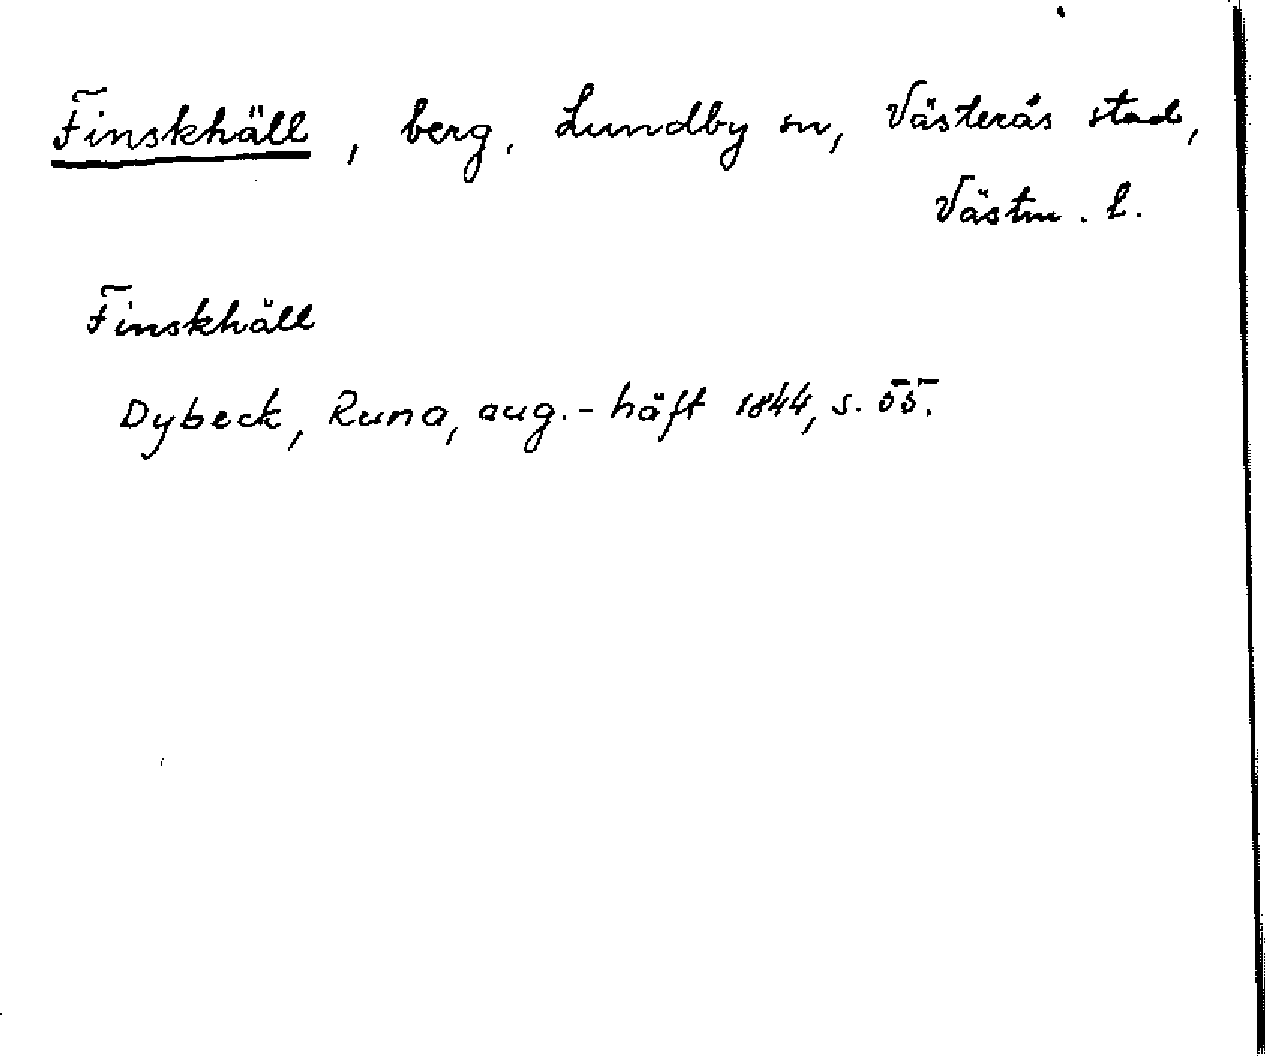 Finskhäll, berg, Lundby sn, Västerås stad,
Västm. l.
Finskhäll
Dybeck, Runa, aug.-häft 1844, s. 55.